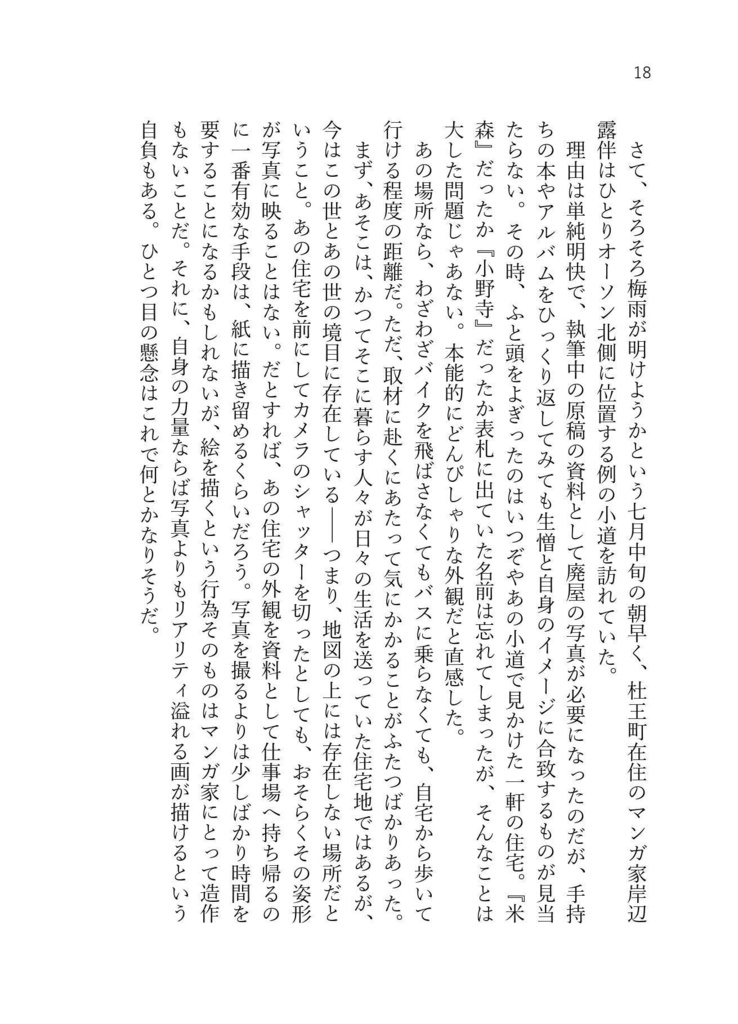 18
さて、そろそろ梅雨が明けようかという七月中旬の朝早く、杜王町在住のマンガ家岸辺
露伴はひとりオーソン北側に位置する例の小道を訪れていた。
理由は単純明快で、執筆中の原稿の資料として廃屋の写真が必要になったのだが、手持
ちの本やアルバムをひっくり返してみても生憎と自身のイメージに合致するものが見当
たらない。その時、ふと頭をよぎったのはいつぞやあの小道で見かけた一軒の住宅。『米
森』だったか『小野寺』だったか表札に出ていた名前は忘れてしまったが、そんなことは
大した問題じゃあない。本能的にどんぴしゃりな外観だと直感した。
あの場所なら、わざわざバイクを飛ばさなくてもバスに乗らなくても、自宅から歩いて
行ける程度の距離だ。ただ、取材に赴くにあたって気にかかることがふたつばかりあった。
まず、あそこは、かつてそこに暮らす人々が日々の生活を送っていた住宅地ではあるが、
今はこの世とあの世の境目に存在している――つまり、地図の上には存在しない場所だと
いうこと。あの住宅を前にしてカメラのシャッターを切ったとしても、おそらくその姿形
が写真に映ることはない。だとすれば、あの住宅の外観を資料として仕事場へ持ち帰るの
に一番有効な手段は、紙に描き留めるくらいだろう。写真を撮るよりは少しばかり時間を
要することになるかもしれないが、絵を描くという行為そのものはマンガ家にとって造作
もないことだ。それに、自身の力量ならば写真よりもリアリティ溢れる画が描けるという
自負もある。ひとつ目の懸念はこれで何とかなりそうだ。